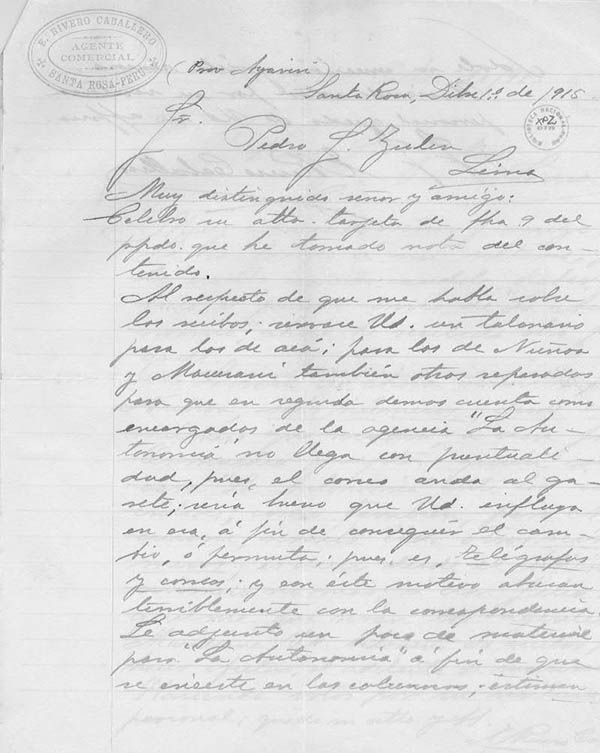 E. RIVERO CABALLERO
AGENTE
COMERCIAL
SANTA ROSA-PERU
(Prov Ayaviri)
Santa Rosa, Dibre 1º de 1915
Sr.
Pedro S. Zulen
Lima
Muy distinguido señor y amigo:
Celebro su atta. tarjeta de fha 9 del
ppdo. que he tomado nota del con-
tenido.
Al respecto de que me habla sobre
los recibos, envase Ud. un talonario
para los de acá; para los de Nuñoa
y Macusani también otros separados
para que en seguida demos cuenta como
encargados de la agencia "La Au-
tonomía" no llega con puntuali-
dad, pues, el correo anda al ga-
rete; sería bueno que Ud. influya
en esa, á fin de conseguir el cam-
bio, ó permuta; pues es, telégrafos
y correos; y con éste motivo abusan
terriblemente con la correspondencia.
Le adjunto un poco de material
para "La Autonomía" á fin de que
se inserte en las columnas,